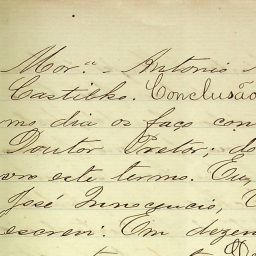 Mor.ª - Antonio
Castilho. Conclusão
mo dia os faço con
Doutor Pretor; do
vro este termo. Eu,
José Innocencio,
escrevi. Em dezen